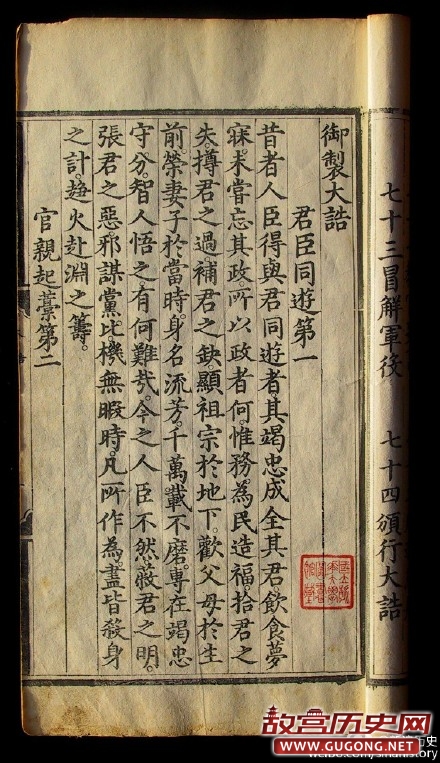 七十三冒解軍役　七十四頒行大誥
御製大誥
君臣同遊第一
昔者人臣得與君同遊者。其竭忠成全其君飲食夢
寐。未嘗忘其政。所以政者何。惟務為民造福拾君之
失。撙君之過。補君之缺。顯祖宗於地下。歡父母於生
前。榮妻子於當時。身名流芳。千萬載不磨。專在竭忠
守分。智人悟之。有何難哉。今之人臣不然。蔽君之明。
張君之惡。邪謀黨比。機無暇時。凡所作為。盡皆殺身
之計。趍火赴淵之籌。
官親起藁第二
故宫历史网
WWW.GUGONG.NET